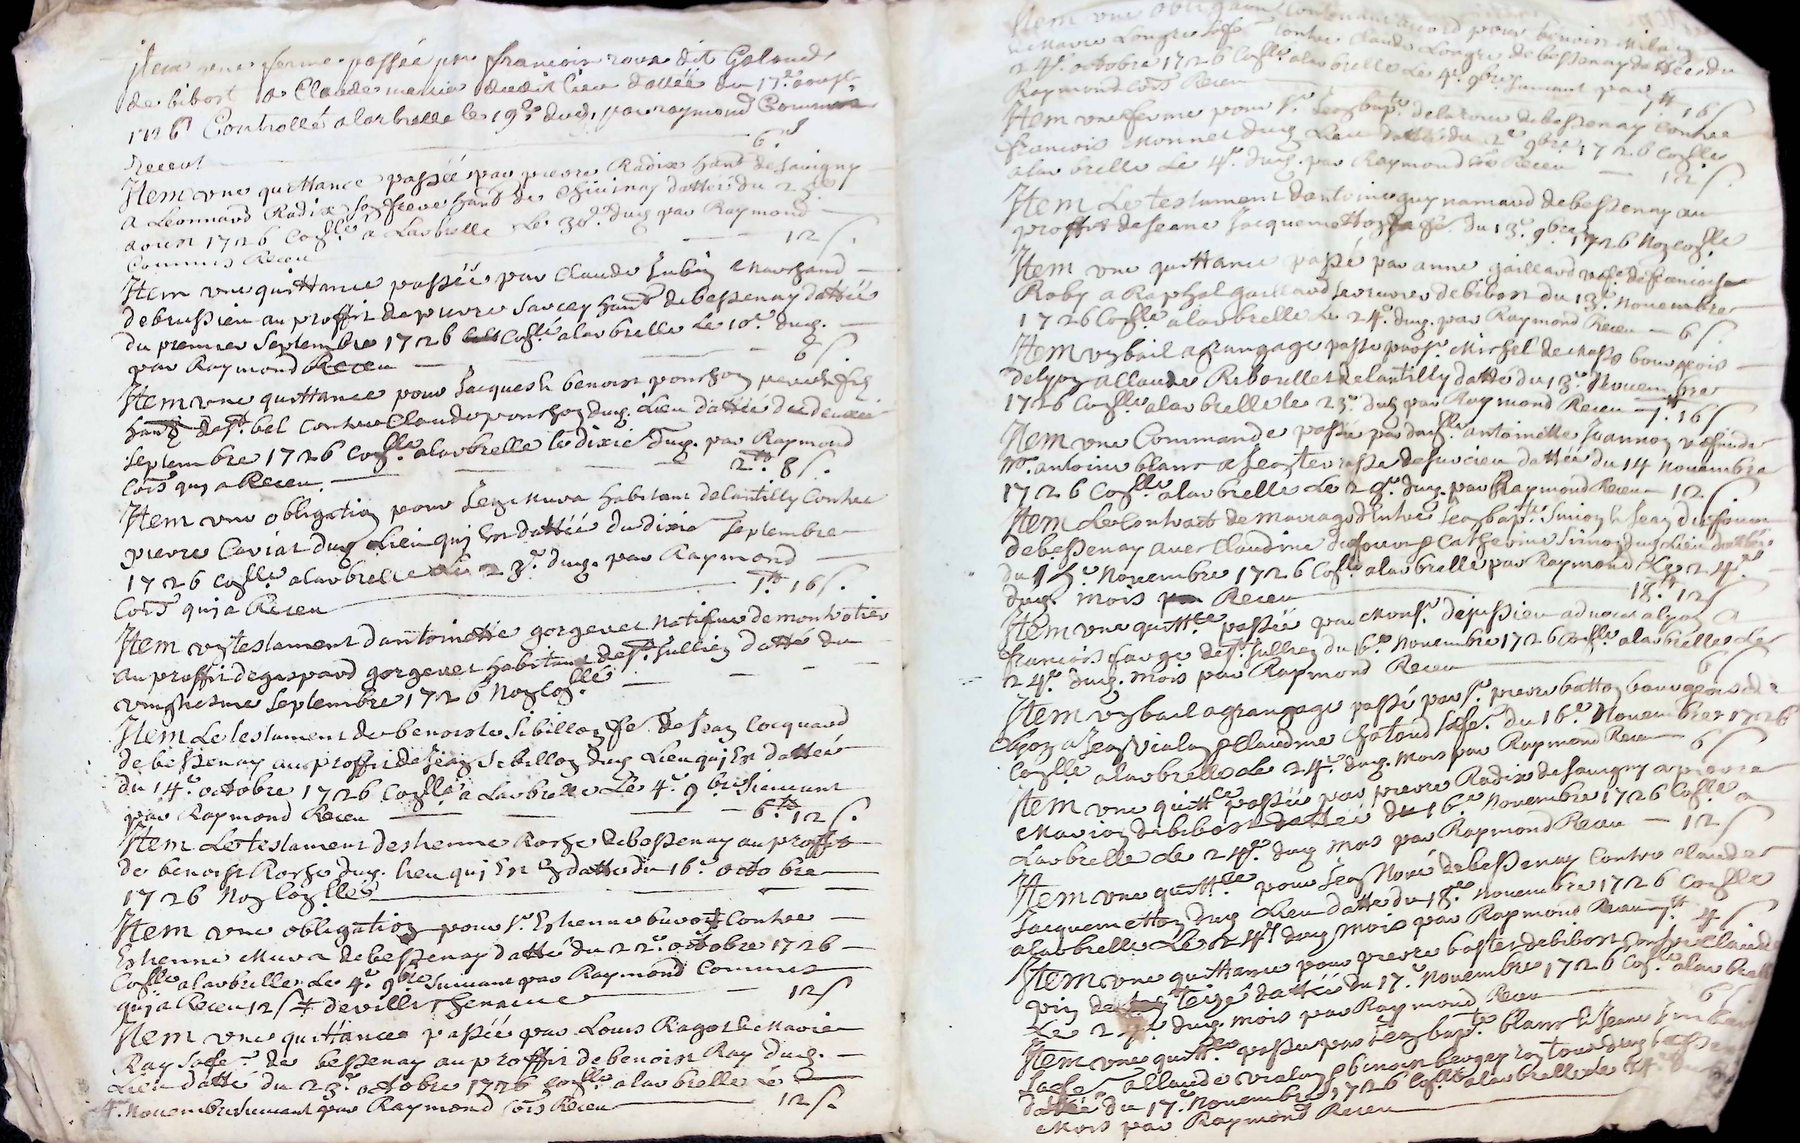 Item une ferme passée par francois roux dit Galand
de bibost a Claude mercier dudit lieu dattée du 17e. aoust
1726 Controllé a larbrelle le 19e. dud. par raymond Commis
Receu 6 s
Item une quittance passée par pierre Radix habt. de savigny
a Leonnard Radix son frere habt. de Chivinay dattée du 25e.
aoust 1726 Conlle. a Larbrelle Le 30e. dud. par Raymond
Commis Receu 12 s.
Item une quittance passée par Claude Marchand
de brussieu au proffit de pierre Sarcey habt. de bessenay dattée
du premier Septembre 1726 Conlle. a larbrelle Le 10e. dud.
par Raymond Receu 6 s.
Item une quittance pour Jacques & benoist ponchon pere & fils
habts de st. bel contre Claude ponchon dud. Lieu dattée du deuxie
Septembre 1726 Conlle. a larbrelle le dixie dud. par Raymond
Coms qui a Receu. 2tt. 8 s.
Item une obligation pour Jean Muva habitant de Lantilly Contre
pierre Caviat dud. Lieu qui Est dattée du dixie Septembre
1726 conlle. a larbrelle Le 23e. dud. par Raymond
Coms qui a Receu 1tt. 16 s.
Item un testament dantoinette gorgeret Natifve de montrotier
au proffit de gaspard gorgeret habitant de st. Jullien datté du
vingtiesme Septembre 1726 Non Conllé.
Item Le testament de benoiste Sibillon fe. de Jean Cocquard
de bessenay au proffit de Jean Sibillon dud. Lieu qui Est dattée
du 14e. octobre 1726 Conllé. a Larbrelle Le 4e. 9bre. Suivant
par Raymond Receu 6tt. 12 s.
Item Le testament deshienne Roche de bessenay au proffit
de benoist Roche dud. lieu qui Est En datte du 16e. octobre
1726 Non Conllé
Item une obligation pour sr. Eshienne buvat ‡ Contre
Eshienne Muva de bessenay datté du 22e. octobre 1726
Conlle. a larbrelle Le 4e. 9bre. Suivant par Raymond Commis
qui a Receu 12 s ‡ de villechenaive 12 s
Item une quittance passée par Louis Ragot & Marie
Ray sa fe. de bessenay au proffit de benoist Ray dud.
Lieu datté du 23e. octobre 1726 conlle. a larbrelle Le
4e. Novembre suivant par Raymond Coms Receu 12 s.
Item une obligation Contenant accord pour benoist
& Marie Longre sa fe. Contre Claude Longre de bessenay dattée du
24e. octobre 1726 Conlle. a larbrelle Le 4e. 9bre. Suivant par
Raymond Coms Receu 1tt 16 s
Item une ferme pour sr. Jean bapte. delaroue de bessenay Contre
francois Monnet dud. Lieu datté du 2e. 9bre. 1726 Conlle
a larbrelle Le 4e. dud. par Raymond Coms Receu 12 s.
Item Le testament dantoine guynamard de bessenay au
proffit de Jeane Jacquemetton sa fe. du 13e. 9bre. 1726 Non Conlle
Item une quittance passé par anne gaillard vefe. de francois
Roby a Raphal Gaillard de bibost du 13e. Novembre
1726 Conlle. a larbrelle Le 24e. dud. par Raymond Receu 6 s.
Item un bail a grangage passé par sr. Michel de bourgeois
de Lyon a Claude Riboullet de Lantilly datté du 13e. Novembre
1726 Conlle. a larbrelle le 23e. dud. par Raymond Receu 1tt. 16 s
Item une Commande passée par dalle. antoinette Joannon vefve de
Mr. antoine blanc a Jean terrasse de surcieu dattée du 14 Novembre
1726 Conlle. a larbrelle Le 28e. dud. par Raymond Receu 12 s.
Item Le Contract de Mariage Entre Jean bapte. Simon & Jean dufour
de bessenay avec Claudine dufour & Catherine Simon dud. Lieu dattée
du 15e. Novembre 1726 Conlle. a larbrelle par Raymond Le 24e.
dud. mois Receu 18tt. 12 s
Item une quittce. passée par Monsr. dejussieu advocat a lyon a
francois farge de st. Jullien du 6e. Novembre 1726 Conlle. a larbrelle Le
24e. dud. mois par Raymond Receu 6 s
Item un bail a grangage passé par sr. pierre batton bourgeois de
Lyon a Jean vialan & Claudine Chatoud sa fe. du 16e. Novembre 1726
Conlle a larbrelle Le 24e. dud. mois par Raymond Receu 6 s
Item une quittce. passée par pierre Radix de savigny a pierre
Marion de bibost dattée du 16e. Novembre 1726 Conlle. a
Larbrelle Le 24e. dud. mois par Raymond Receu 12 s
Item une quittce. pour Jean Noué de bessenay Contre Claude
Jacquemetton dud. Lieu datté du 18e. Novembre 1726 Conlle
a larbrelle Le 24e. dud. mois par Raymond Receu 1tt 4 s.
Item une quittance pour pierre bastet de bibost contre Claude
vin de teizé dattée du 17e. Novembre 1726 Conlle. a larbrelle
Le 24e. dud. mois par Raymond Receu 6 s
Item une quittce. passée par Jean bapte. blanc & Jeane
sa fe. a Claude vialan & benoist dud. bessenay
dattée du 17e. Novembre 1726 Conlle. a larbrelle Le 24e. dud.
Mois par Raymond Receu